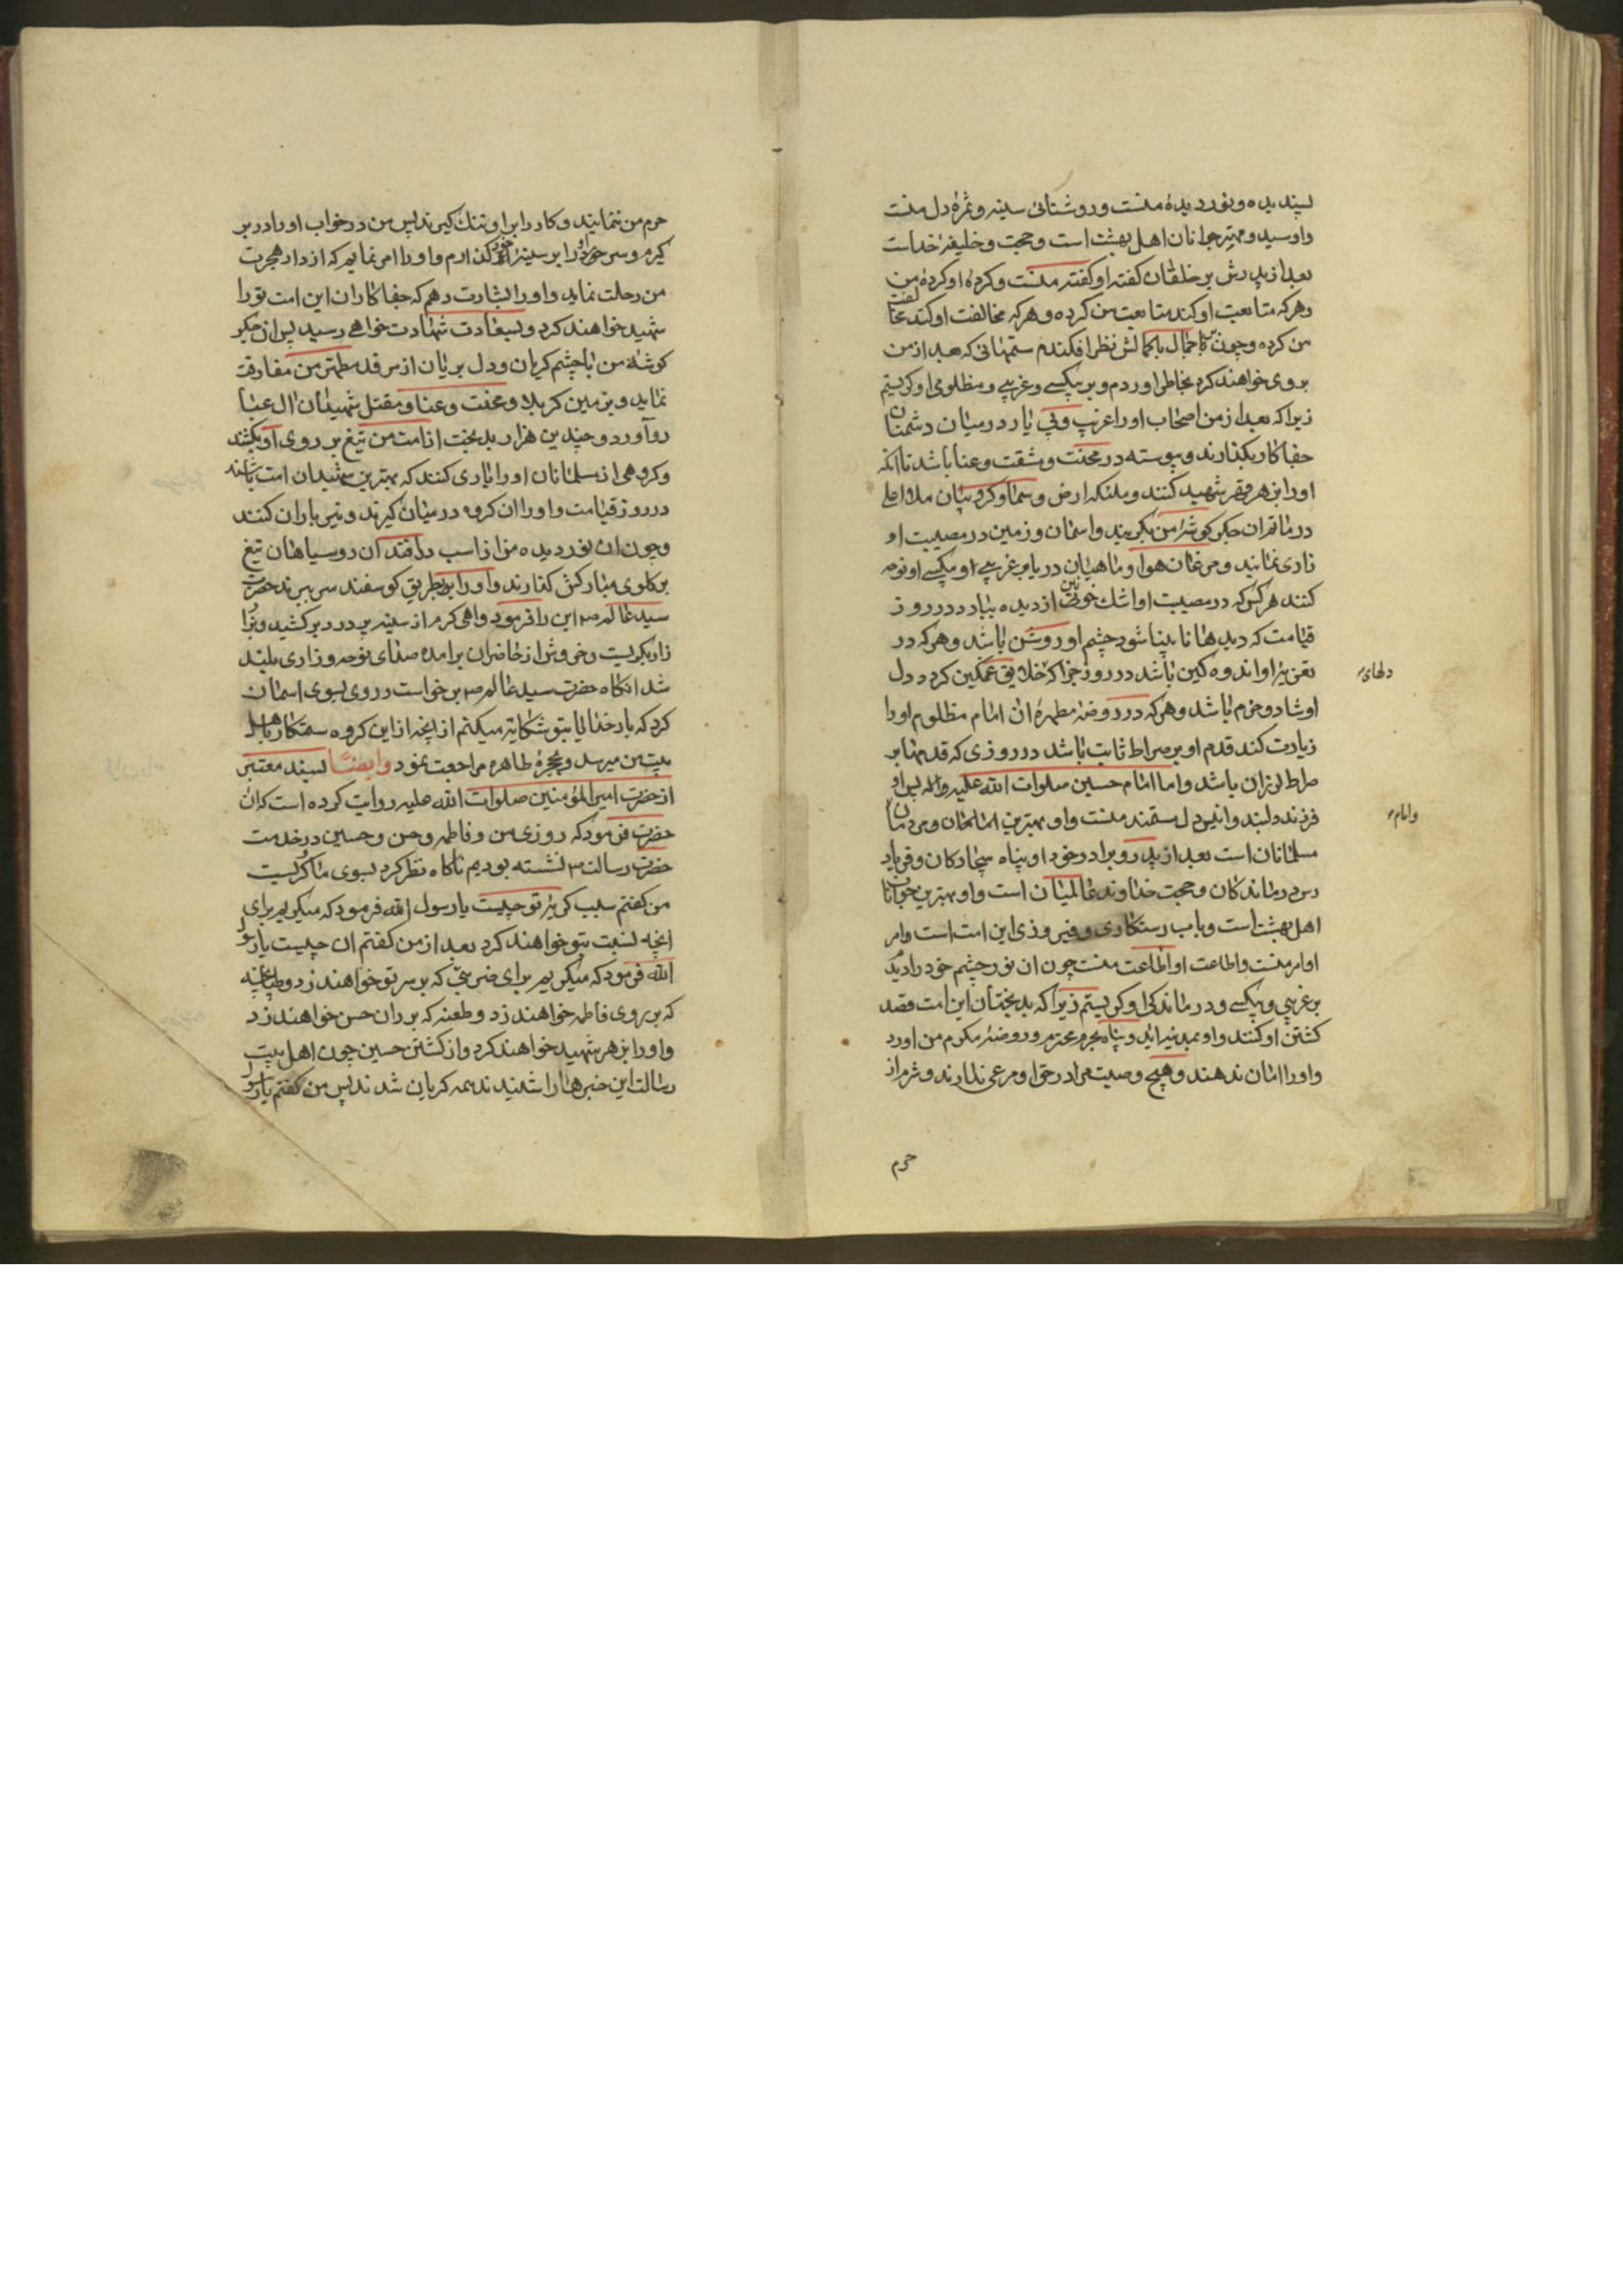 پسندیده و نور دیدهٔ منست و روشنائی سینه و ثمرهٔ دل منست
و او سید و مهتر جوانان اهل بهشت است و حجت و خلیفهٔ خداست
بعد از پدرش بر خلقان کفته او کفتهٔ منست و کردهٔ او کردهٔ من
و هر که متابعت او کند متابعت من کرده و هر که مخالفت او کند مخالفت
من کرده و چون با جمال با کمالش نظر افکندم ستمهائی که بعد از من
بر وی خواهند کرد بخاطر اوردم و بر بیکسی و غریبی و مظلومی او کریستم
زیرا که بعد از من اصحاب او را غریب و بی یار در میان دشمنان
جفاکار بکذارند و پیوسته در محنت و مشقت و عنا باشد تا انکه
او را بزهر قهر شهید کنند و ملئکه ارض و سما و کروبیان ملاء اعلی
در ماتم ان جکر کوشهٔ من بکریند و اسمان و زمین در مصیبت او
زاری نمایند و مرغان هوا و ماهیان دریا بر غریبی او و بیکسی او نوحه
کنند هر کس که در مصیبت او اشک خونین از دیده ببارد در روز
قیامت که دیدها نابینا شود چشم او روشن باشد و هر که در
تعزیهٔ او اندوهکین باشد در روز جزا که خلایق غمکین کردد دل
دلهای
او شاد و خرم باشد و هر که در روضهٔ مطهرهٔ ان امام مظلوم او را
زیارت کند قدم او بر صراط ثابت باشد در روزی که قدمها بر
صراط لرزان باشد و اما امام حسین صلوات الله علیه و اله پس او
فرزند دلبند و انیس دل مستمند منست و او بهترین امامان و مردمان
وامام
مسلمانان است بعد از پدر و برادر خود او پناه بیچارکان و فریاد
رس درماندکان و حجت خداوند عالمیان است و او بهترین جوانان
اهل بهشت است و باب رستکاری و فیروزی این امت است و امر
او امر منست و اطاعت او اطاعت منست چون ان نور چشم خود را دیدم
بر غریبی و بیکسی و درماندکی او کریستم زیرا که بدبختان این امت قصد
کشتن او کنند و او بمدینه اید و پناه بحرم محترم و روضهٔ مکرم من اورد
و او را امان ندهند و هیچ وصیت مرا در حق او مرعی ندارند و شرم از
حرم
حرم من ننمایند و کار را بر او تنک کیرند پس من در خواب او را در بر
کیرم و سر خود را بر سینهٔ او کذارم و او را امر نمایم که از دار هجرت
من رحلت نماید و او را بشارت دهم که جفاکاران این امت تو را
شهید خواهند کرد و بسعادت شهادت خواهی رسید پس ان جکر
کوشهٔ من با چشم کریان و دل بریان از مرقد مطهر من مفارقت
نماید و بزمین کربلا و محنت و عنا و مقتل شهیدان ال عبا
رو آورد و چندین هزار بدبخت از امت من تیغ بر روی او بکشند
و کروهی از مسلمانان او را یاری کنند که بهترین شهیدان امت باشند
در روز قیامت و او را ان کروه در میان کیرند و تیر باران کنند
و چون ان نور دیده من از اسب درافتد ان روسیاهان تیغ
بر کلوی مبارکش کذارند و او را بطریق کوسفند سر ببرند حضرت
سید عالم ص این را فرمود و اهی کرم از سینه پر درد بر کشید و بزا
زار بکریست و خروش از حاضران برامده صدای نوحه و زاری بلند
شد انکاه حضرت سید عالم ص برخواست و روی بسوی اسمان
کرد که بار خدایا بتو شکایت میکنم از اینچه از این کروه ستمکار باهل
بیت من میرسد و بحجرهٔ طاهره مراجعت نمود و ایضاً بسند معتبر
از حضرت امیر المؤمنین صلوات الله علیه روایت کرده است که ان
حضرت فرمود که روزی من و فاطمه و حسن و حسین در خدمت
حضرت رسالت ص نشسته بودیم ناکاه نظر کرد بسوی ما و کریست
من کفتم سبب کریهٔ تو چیست یا رسول الله فرمود که میکریم برای
انچه نسبت بتو خواهند کرد بعد از من کفتم ان چیست یا رسول
الله فرمود که میکریم برای ضربتی که بر سر تو خواهند زد و طپانچه
که بر روی فاطمه خواهند زد و طعنه که بر ران حسن خواهند زد
و او را بزهر شهید خواهند کرد و از کشتن حسین چون اهل بیت
رسالت این خبرها را شنیدند همه کریان شدند پس من کفتم یا رسول